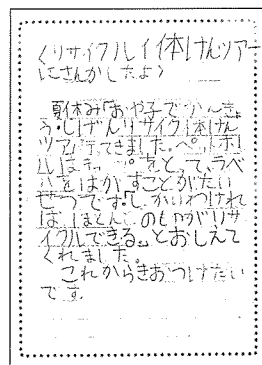 くリサイクル体けんツアー
にさんかしたよ>
夏休み「おや子でかんきょ
う・しげんリサイクル体けん
ツアーに行ってきました。ペットボト
ルはキャップをとって、ラベ
ルをはがすことがたい
せつです。「しかいわければ
ば、ほとんどのものがリサ
イクルできる。」とおしえて
くれました。
これからきおつけたい
です。